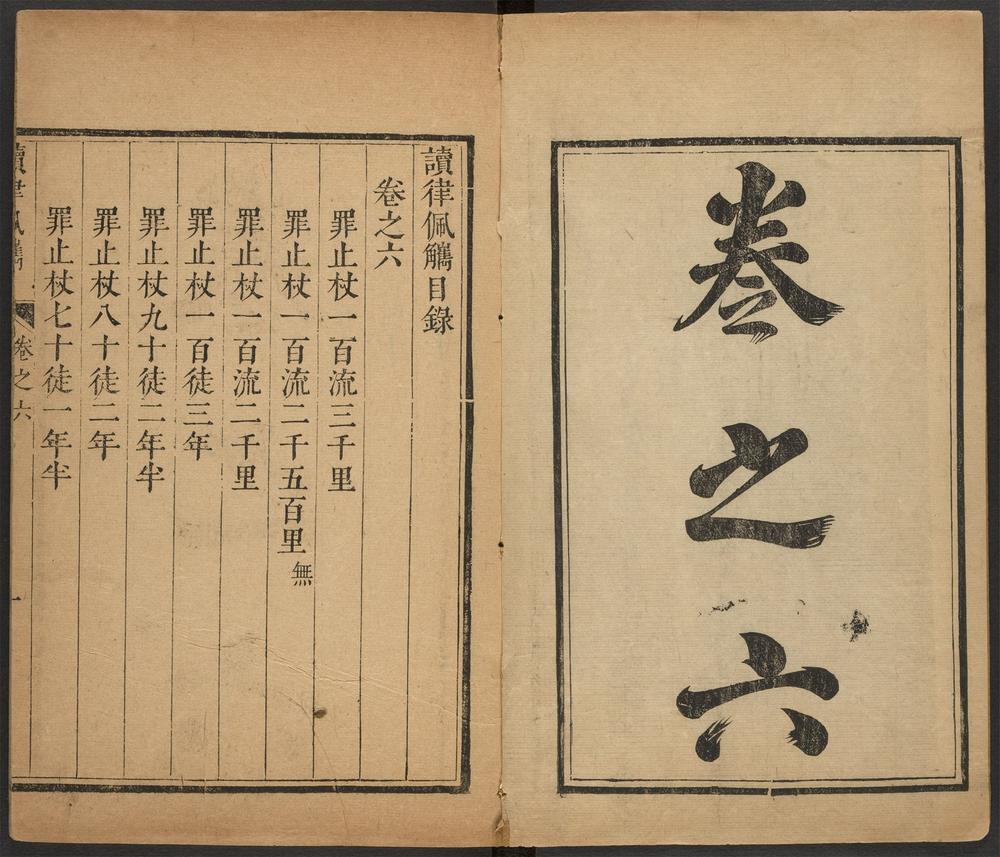 卷之六
讀律佩觿目錄
卷之六
罪止杖一百流三千里
罪止杖一百流二千五百里 無
罪止杖一百流二千里
罪止杖一百徒三年
罪止杖九十徒二年半
罪止杖八十徒二年
罪止杖七十徒一年半
讀律佩觿 卷之六 一